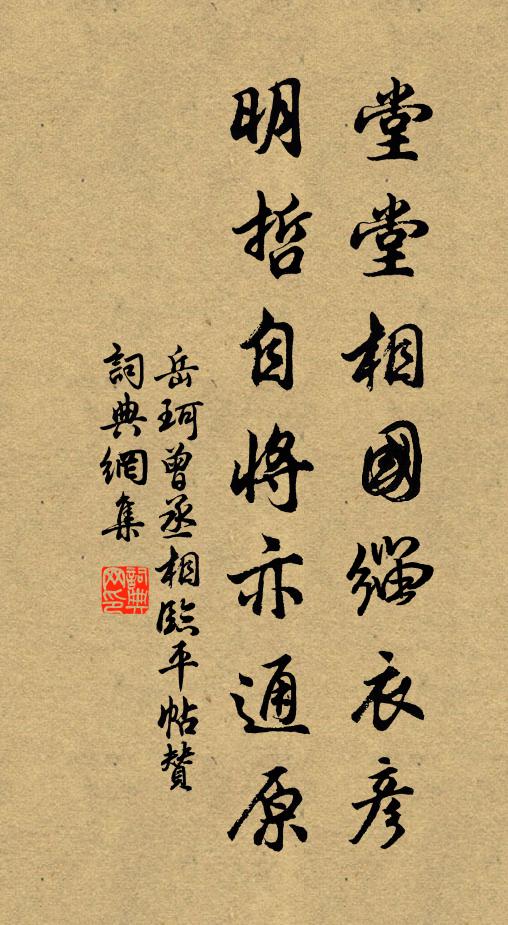 堂堂相國緇衣彥
明哲自將亦通原
岳珂曾丞相臨平帖贊
詞典網集
詞典網印